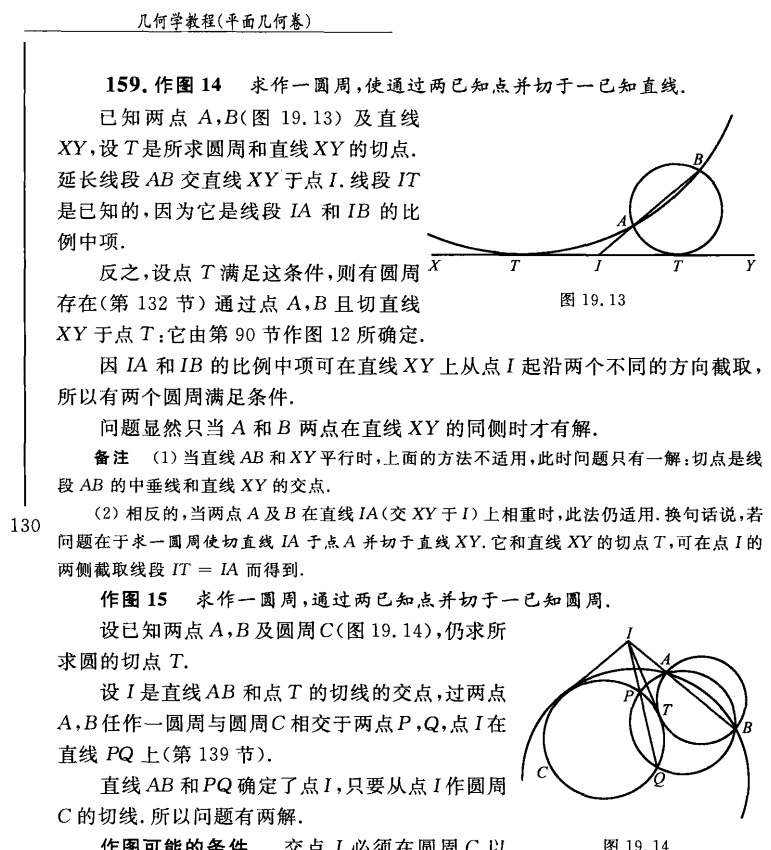 几何学教程(平面几何卷)
159. 作图 14 求作一圆周,使通过两已知点并切于一已知直线.
已知两点 A,B(图 19.13) 及直线
XY,设 T 是所求圆周和直线 XY 的切点.
延长线段 AB 交直线 XY 于点 I. 线段 IT
是已知的,因为它是线段 IA 和 IB 的比
例中项.
反之,设点 T 满足这条件,则有圆周
存在(第 132 节) 通过点 A,B 且切直线
XY 于点 T;它由第 90 节作图 12 所确定.
A
B
X
T
I
T
Y
图 19.13
因 IA 和 IB 的比例中项可在直线 XY 上从点 I 起沿两个不同的方向截取,
所以有两个圆周满足条件.
问题显然只当 A 和 B 两点在直线 XY 的同侧时才有解.
备注 (1) 当直线 AB 和 XY 平行时,上面的方法不适用,此时问题只有一解:切点是线
段 AB 的中垂线和直线 XY 的交点.
(2) 相反的,当两点 A 及 B 在直线 IA(交 XY 于 I) 上相重时,此法仍适用. 换句话说,若
问题在于求一圆周使切直线 IA 于点 A 并切于直线 XY. 它和直线 XY 的切点 T,可在点 I 的
两侧截取线段 IT = IA 而得到.
130
作图 15 求作一圆周,通过两已知点并切于一已知圆周.
设已知两点 A,B 及圆周 C(图 19.14),仍求所
求圆的切点 T.
设 I 是直线 AB 和点 T 的切线的交点,过两点
A,B 任作一圆周与圆周 C 相交于两点 P,Q,点 I 在
直线 PQ 上(第 139 节).
直线 AB 和 PQ 确定了点 I,只要从点 I 作圆周
C 的切线. 所以问题有两解.
I
A
P
T
B
C
Q
作图可能的条件 交点 I 必须在圆周 C 以
图 19.14